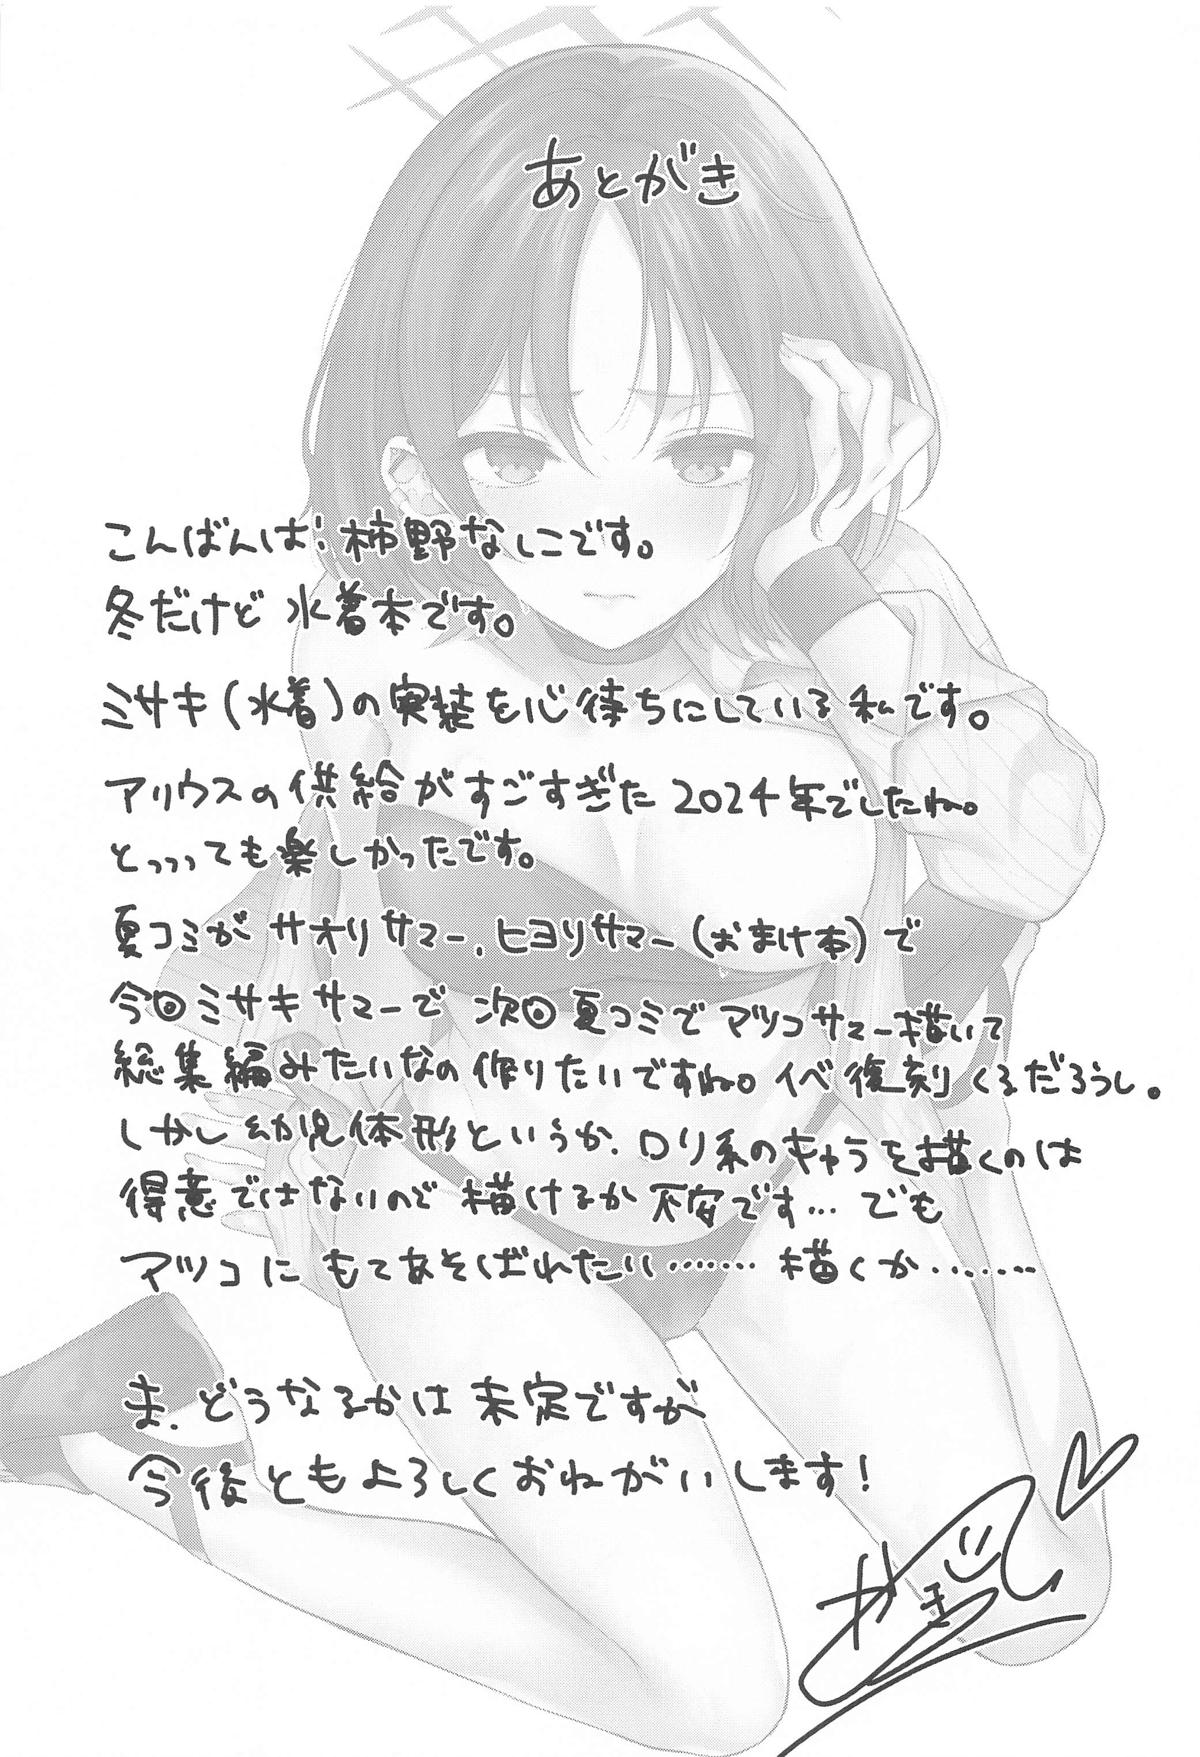 あとがき
こんばんは！柿野なしこです。
冬だけど水着本です。
ミサキ(水着)の実装を心待ちにしている私です。
アリウスの供給がすごすぎた2024年でしたね。
とっっっても楽しかったです。
夏コミがサオリサマー、ヒヨリサマー(おまけ本)で
今回ミサキサマーで次回夏コミでアツコサマー描いて
総集編みたいなの作りたいですね。イベ復刻くるだろうし。
しかし幼児体形というか、ロリ系のキャラを描くのは
得意ではないので描けるか不安です…でも
アツコにもてあそばれたい………描くか………
ま、どうなるかは未定ですが
今後ともよろしくおねがいします！